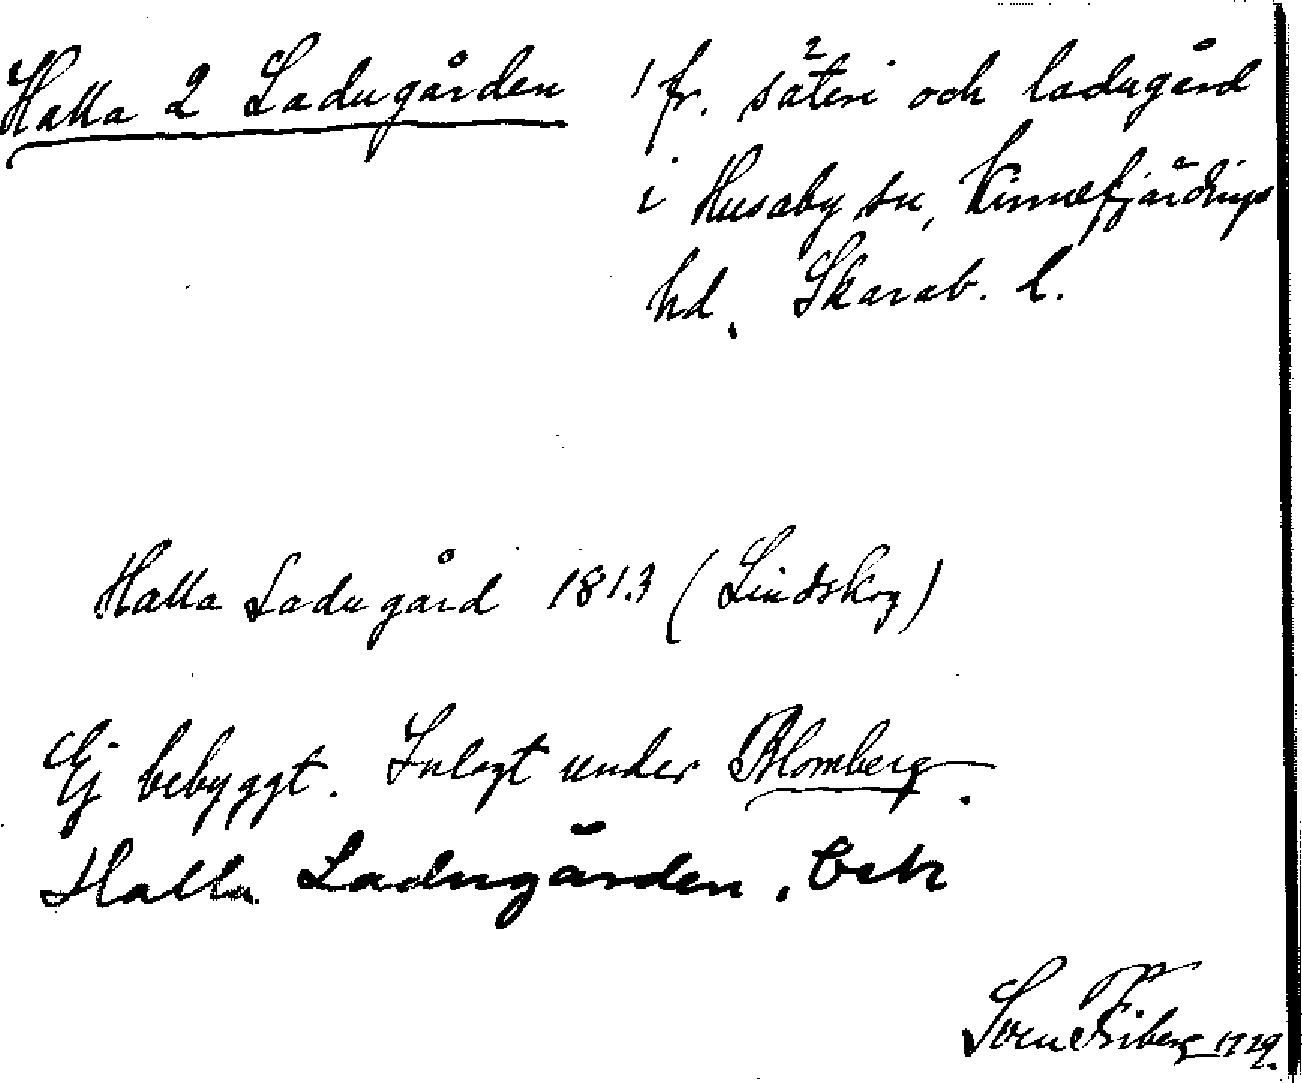 Halla 2 Ladugården
1 fr. säteri och ladugård
i Husaby sn, Kinnefjärdings
hd. Skarab. l.
Halla Ladugård 1813 (Lindskog)
Ej bebyggt. Inlagt under Blomberg.
Halla Ladugården. bek
Sven Friberg 1929.